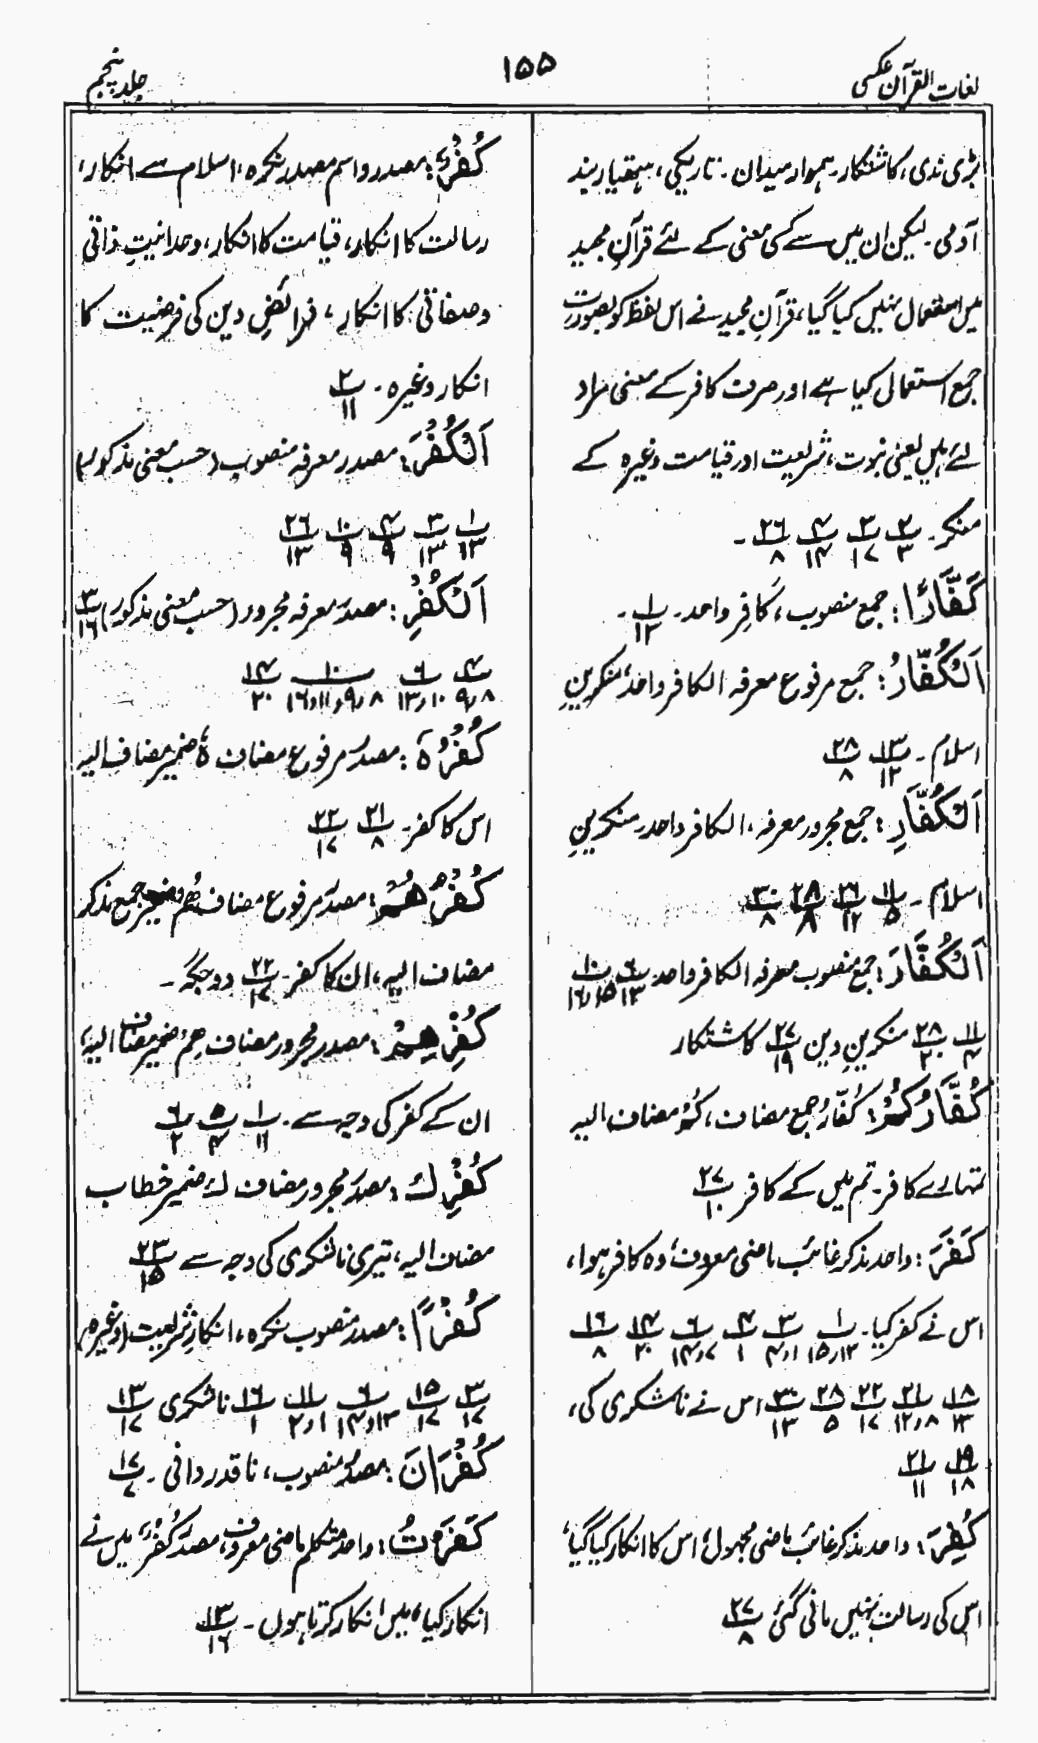 لغات القرآن عکسی
۱۵۵
جلد پنجم
بڑی ندی، کاشتکار۔ ہموار میدان۔ تاریکی، ہتھیار بند
آدمی۔ لیکن ان میں سے کسی معنی کے لئے قرآن مجید
میں استعمال نہیں کیا گیا، قرآنِ مجید نے اس لفظ کو بصورت
جمع استعمال کیا ہے اور صرف کافر کے معنی مراد
لئے ہیں یعنی نبوت، شریعت اور قیامت وغیرہ کے
منکر۔ ۲/۳ ۳/۱۷ ۴/۱۴ ۲۶/۸ ۔
کُفَّارًا: جمع منصوب، کافِر واحد۔ ۱/۱۳ ۔
اَلْکُفَّارُ: جمع مرفوع معرفہ الکافر واحد، منکرینِ
اسلام۔ ۱۳/۱۲ ۲۸/۸
اَلْکُفَّارِ: جمع مجرور معرفہ، الکافر واحد۔ منکرینِ
اسلام۔ ۱۱/۵ ۲۶/۱۲ ۲۸/۸ ۳۰/۸
اَلْکُفَّارَ: جمع منصوب معرفہ الکافر واحد ۶/۱۳ ۱۰/۱۵،۱۶
۱۱/۴ ۲۸/۲۰ منکرینِ دین ۲۷/۱۹ کاشتکار
کُفَّارُکُمْ: کُفّارُ جمع مضاف، کُمْ مضاف الیہ
تمہارے کافر۔ تم میں کے کافر ۲۷/۱۰
کَفَرَ: واحد مذکر غائب ماضی معروف، وہ کافر ہوا،
اس نے کفر کیا۔ ۱/۱۲،۱۵ ۳/۱،۴ ۴/۱ ۶/۷،۱۴ ۱۴/۲۰ ۱۶/۸
۱۸/۱۳ ۲۱/۸،۱۲ ۲۲/۱۷ ۲۸/۵ ۳۰/۱۳ اس نے ناشکری کی،
۱۹/۱۸ ۲۱/۱۱
کُفِرَ: واحد مذکر غائب ماضی مجہول، اس کا انکار کیا گیا،
اس کی رسالت نہیں مانی گئی ۲۷/۸
کُفْرٌ: مصدر و اسم مصدر نکرہ، اسلام سے انکار،
رسالت کا انکار، قیامت کا انکار، وحدانیتِ ذاتی
و صفاتی کا انکار، فرائضِ دین کی فرضیت کا
انکار وغیرہ۔ ۲/۱۱
اَلْکُفْرَ: مصدر معرفہ منصوب (حسب معنی مذکور)
۱/۱۳ ۳/۱۳ ۴/۹ ۱۰/۹ ۲۶/۱۳
اَلْکُفْرِ: مصدر معرفہ مجرور (حسب معنی مذکور) ۳/۱۶
۴/۸،۹ ۶/۱۰،۱۳ ۱۰/۸،۹،۱۱،۱۶ ۱۴/۲۰
کُفْرُہٗ: مصدر مرفوع مضاف ہٗ ضمیر مضاف الیہ
اس کا کفر۔ ۲۱/۸ ۲۲/۱۷
کُفْرُھُمْ: مصدر مرفوع مضاف ھُم ضمیر جمع مذکر
مضاف الیہ، ان کا کفر۔ ۲۲/۱۷ دو جگہ۔
کُفْرِھِمْ: مصدر مجرور مضاف ھِمْ ضمیر مضاف الیہ،
ان کے کفر کی وجہ سے۔ ۱/۱۱ ۵/۴ ۶/۲
کُفْرِكَ: مصدر مجرور مضاف كَ ضمیر خطاب
مضاف الیہ، تیری ناشکری کی وجہ سے ۲۳/۱۵
کُفْرًا: مصدر منصوب نکرہ، انکارِ شریعت (وغیرہ)
۳/۱۷ ۱۵/۱۷ ۶/۱۳،۱۴ ۱۱/۱،۲ ۱۶/۱ ناشکری ۱۳/۱۷
کُفْرَانَ: مصدر منصوب، ناقدردانی۔ ۱۷/۷
کَفَرْتُ: واحد متکلم ماضی معروف، مصدر کُفْرٌ، میں نے
انکار کیا، میں انکار کرتا ہوں۔ ۱۳/۱۶